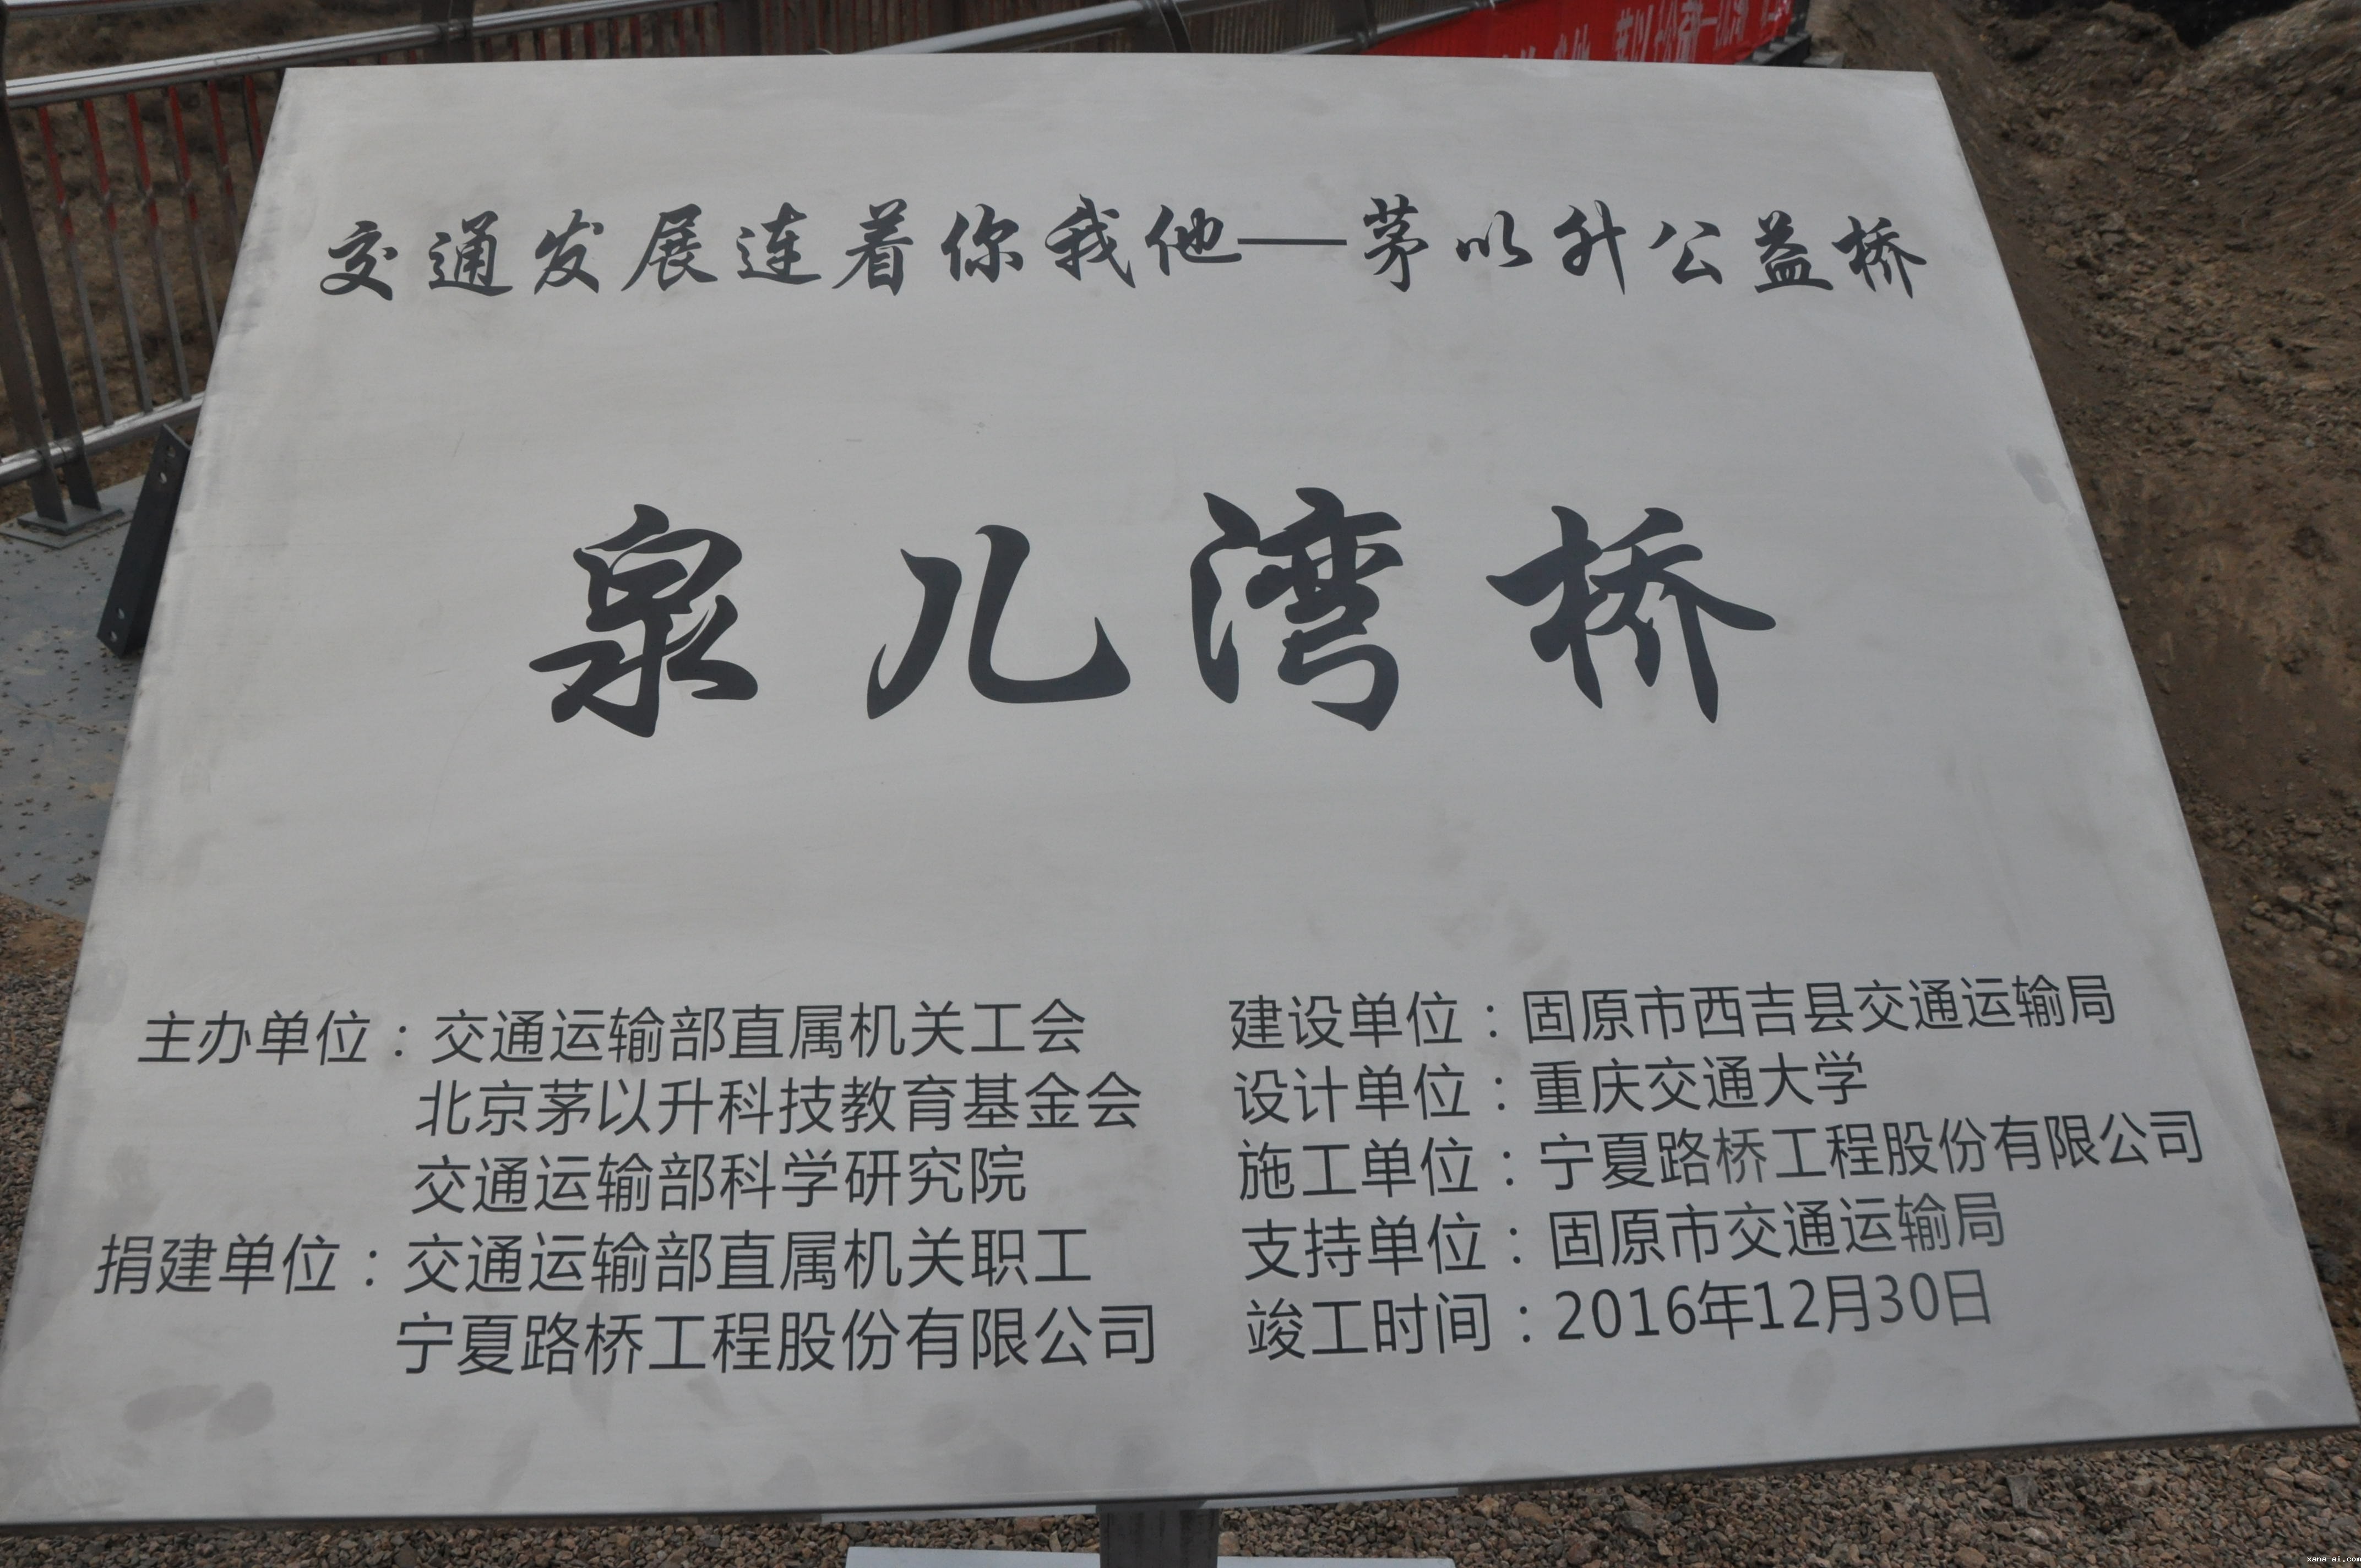 交通发展连着你我他——茅以升公益桥
泉儿湾桥
主办单位：交通运输部直属机关工会
北京茅以升科技教育基金会
交通运输部科学研究院
捐建单位：交通运输部直属机关职工
宁夏路桥工程股份有限公司
建设单位：固原市西吉县交通运输局
设计单位：重庆交通大学
施工单位：宁夏路桥工程股份有限公司
支持单位：固原市交通运输局
竣工时间：2016年12月30日
xana-ai.com